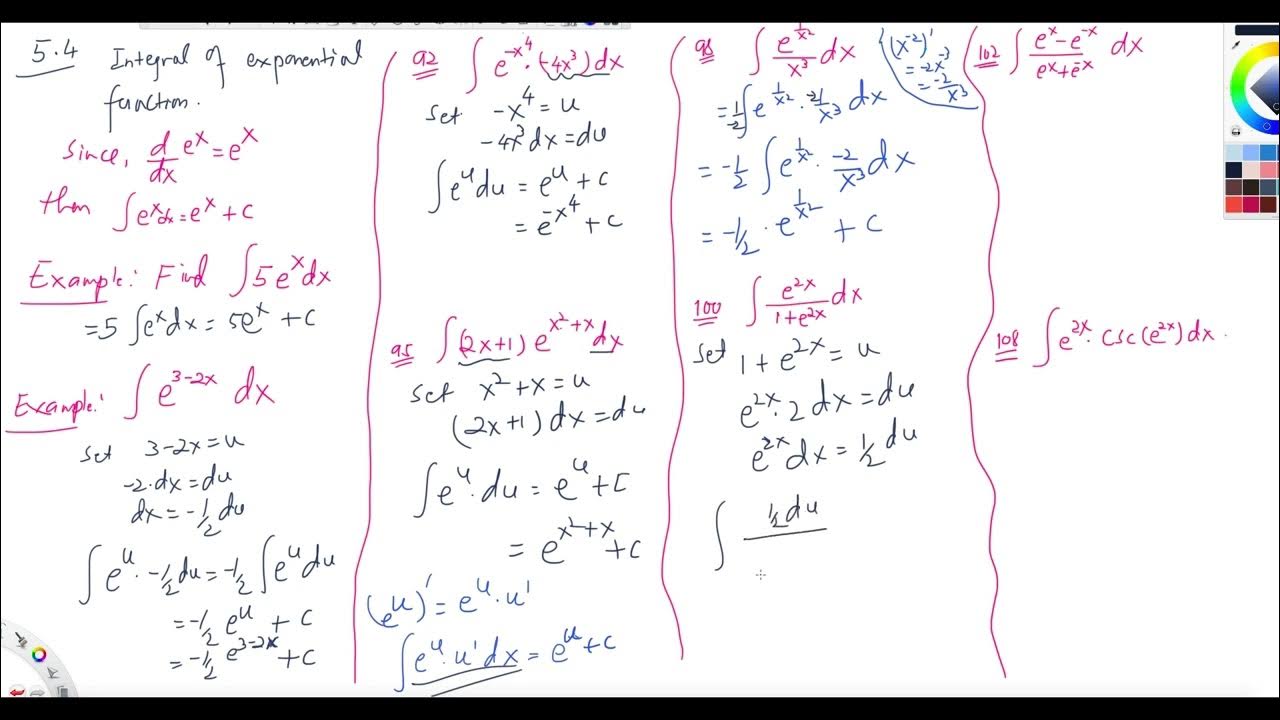 5.4 Integral of exponential
function.
Since, d/dx e^x = e^x
then ∫e^x dx = e^x + c
Example: Find ∫5e^x dx
= 5∫e^x dx = 5e^x + c
Example: ∫e^(3-2x) dx
set 3-2x = u
-2·dx = du
dx = -1/2 du
∫e^u · -1/2 du = -1/2 ∫e^u du
= -1/2 e^u + c
= -1/2 e^(3-2x) + c
92 ∫e^(-x^4) · (-4x^3) dx
set -x^4 = u
-4x^3 dx = du
∫e^u du = e^u + c
= e^(-x^4) + c
95 ∫(2x+1) e^(x^2+x) dx
set x^2+x = u
(2x+1) dx = du
∫e^u · du = e^u + C
= e^(x^2+x) + c
(e^u)' = e^u · u'
∫e^u · u' dx = e^u + c
98 ∫ e^(1/x^2) / x^3 dx
(x^-2)'
= -2x^-3
= -2/x^3
= 1/-2 ∫e^(1/x^2) · -2·1/x^3 dx
= -1/2 ∫e^(1/x^2) · -2/x^3 dx
= -1/2 · e^(1/x^2) + c
100 ∫ e^(2x) / (1+e^(2x)) dx
set 1+e^(2x) = u
e^(2x) · 2 dx = du
e^(2x) dx = 1/2 du
∫ 1/2 du
102 ∫ (e^x - e^-x) / (e^x + e^-x) dx
108 ∫e^(2x) · csc(e^(2x)) dx.